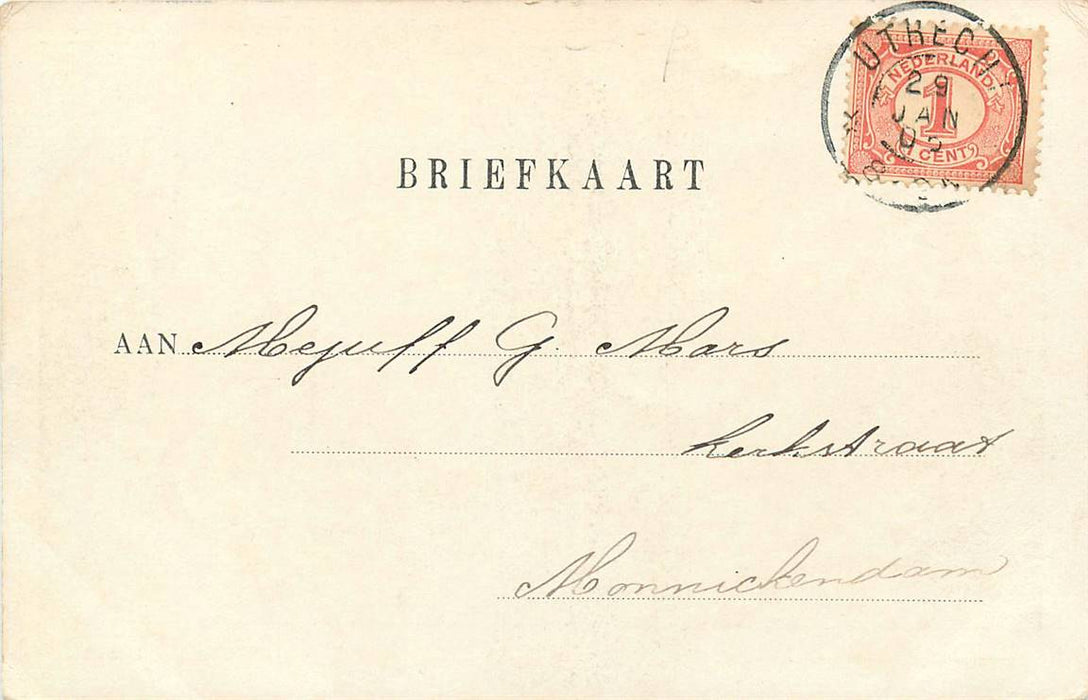 UTRECHT
NEDERLAND
29
JAN
1
CENT
BRIEFKAART
AAN Mejuff G. Mars
Kerkstraat
Monnickendam